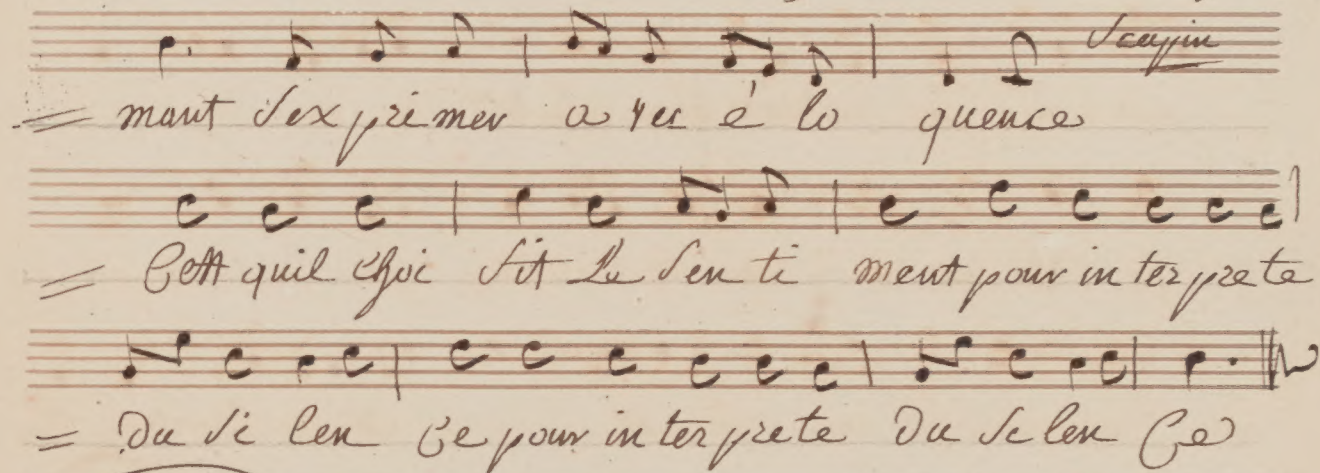 = mant s'exprimer a vec é lo quence
= C'est quil choi sit Le sen ti ment pour in ter prete
= Du si len ce pour in ter prete Du si len Ce